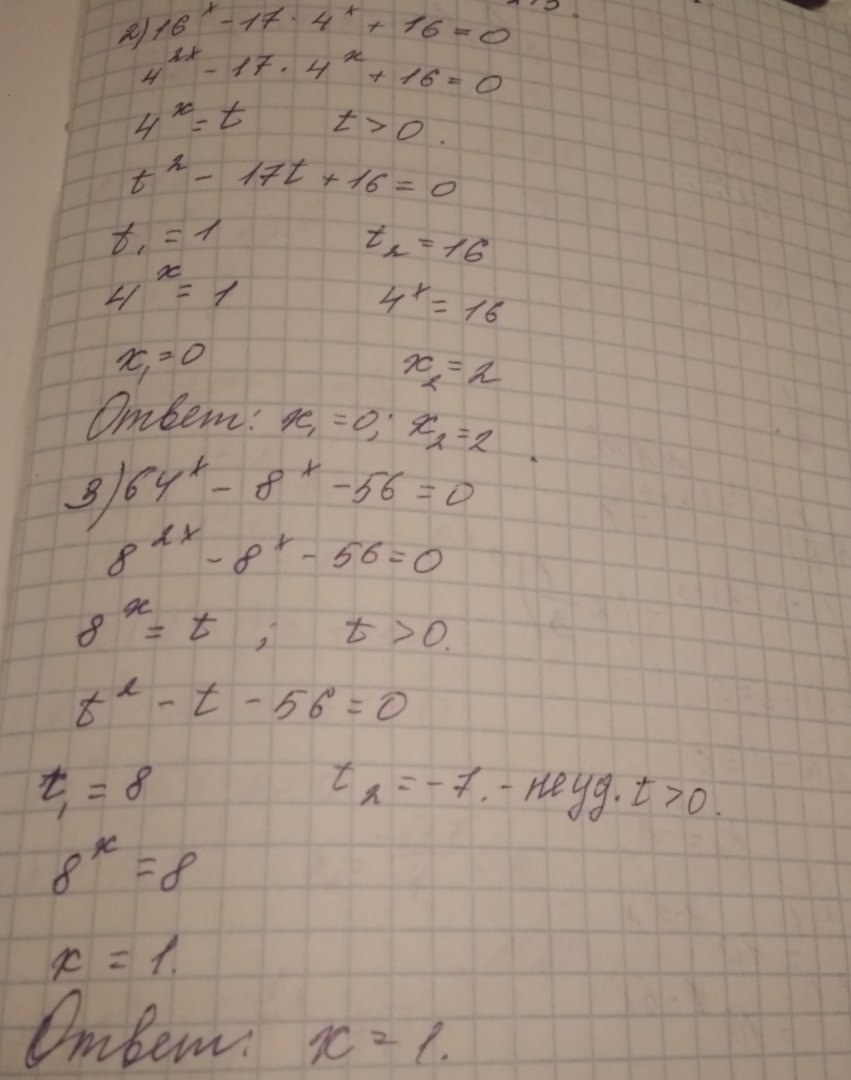 2) 16^x - 17 · 4^x + 16 = 0
4^2x - 17 · 4^x + 16 = 0
4^x = t t > 0.
t^2 - 17t + 16 = 0
t₁ = 1 t₂ = 16
4^x = 1 4^x = 16
x₁ = 0 x₂ = 2
Ответ: x₁ = 0; x₂ = 2
3) 64^x - 8^x - 56 = 0
8^2x - 8^x - 56 = 0
8^x = t ; t > 0.
t^2 - t - 56 = 0
t₁ = 8 t₂ = -7. - неуд. t > 0.
8^x = 8
x = 1.
Ответ: x = 1.